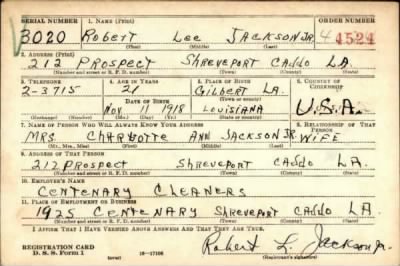 SERIAL NUMBER 1. NAME (Print) ORDER NUMBER
3020 ROBERT LEE JACKSON JR. 4524
(First) (Middle) (Last)
2. ADDRESS (Print)
212 PROSPECT SHREVEPORT CADDO LA.
(Number and street or R. F. D. number) (Town) (County) (State)
3. TELEPHONE 4. AGE IN YEARS 5. PLACE OF BIRTH 6. COUNTRY OF CITIZENSHIP
2-3715 21 GILBERT LA.
DATE OF BIRTH (Town or county)
NOV 11 1918 LOUISIANA U.S.A.
(Exchange) (Number) (Mo.) (Day) (Yr.) (State or country)
7. NAME OF PERSON WHO WILL ALWAYS KNOW YOUR ADDRESS 8. RELATIONSHIP OF THAT PERSON
MRS CHARLOTTE ANN JACKSON JR WIFE
(Mr., Mrs., Miss) (First) (Middle) (Last)
9. ADDRESS OF THAT PERSON
212 PROSPECT SHREVEPORT CADDO LA.
(Number and street or R. F. D. number) (Town) (County) (State)
10. EMPLOYER'S NAME
CENTENARY CLEANERS
11. PLACE OF EMPLOYMENT OR BUSINESS
1925 CENTENARY SHREVEPORT CADDO LA.
(Number and street or R. F. D. number) (Town) (County) (State)
I AFFIRM THAT I HAVE VERIFIED ABOVE ANSWERS AND THAT THEY ARE TRUE.
REGISTRATION CARD
D. S. S. Form 1 16—17105 Robert L. Jackson Jr.
(Registrant's signature)